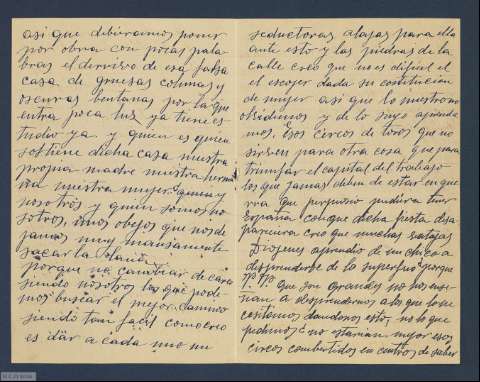 asi que debieramos poner
por obra con pocas pala-
bras el derribo de esa falsa
casa de gruesas colunas y
oscuras bentanas por la que
entra poca luz ya tiene es-
tudio ya y quien es quien
sostiene dicha casa nuestra
propia madre nuestra herma
na nuestra mujer quien y
nosotros y quien somos no
sotros, unos obejos que nos de
jamos muy mansamente
sacar la
porque no cambiar de cara
siendo nosotros los que pode
mos buscar el mejor camino
siendo tan facil como creo
es dar a cada uno su
seductoras alajas para ella
ante esto y las piedras de la
calle creo que no es dificil el
el escojer dada su
de mujer asi que lo nuestro no
olvidemos y de lo suyo aprenda
mos, Esos circos de toros que no
sirven para otra cosa que para
triunfar el capital del trabajo
los que jamas debia de estar en que
rria que pudiera tener
España con que dicha fiesta desa
pareciera creo que muchas
Diogenes aprendio de un chico a
desprenderse de lo superfluo porque
que son grandes no nos ense
ñan a desprendernos a los que lo ne
cesitamos dandonos esto, no lo que
pedimos? no estarian mejor esos
circos combertidos en centros de saber